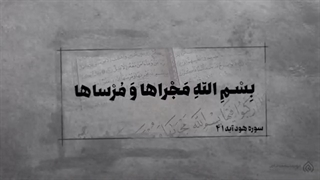 بِسْمِ اللّهِ مَجْراها وَ مُرْساها
سوره هود آیه ۴۱